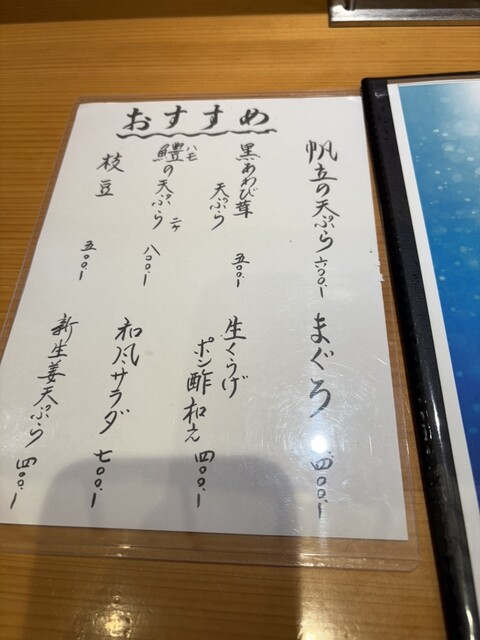 おすすめ
帆立の天ぷら 六〇〇.-
黒あわび茸
天ぷら 五〇〇.-
鱧の天ぷら 二ケ 八〇〇.-
ハモ
枝豆 五〇〇.-
まぐろ 四〇〇.-
生くらげ
ポン酢和え 四〇〇.-
和風サラダ 七〇〇.-
新生姜天ぷら 四〇〇.-